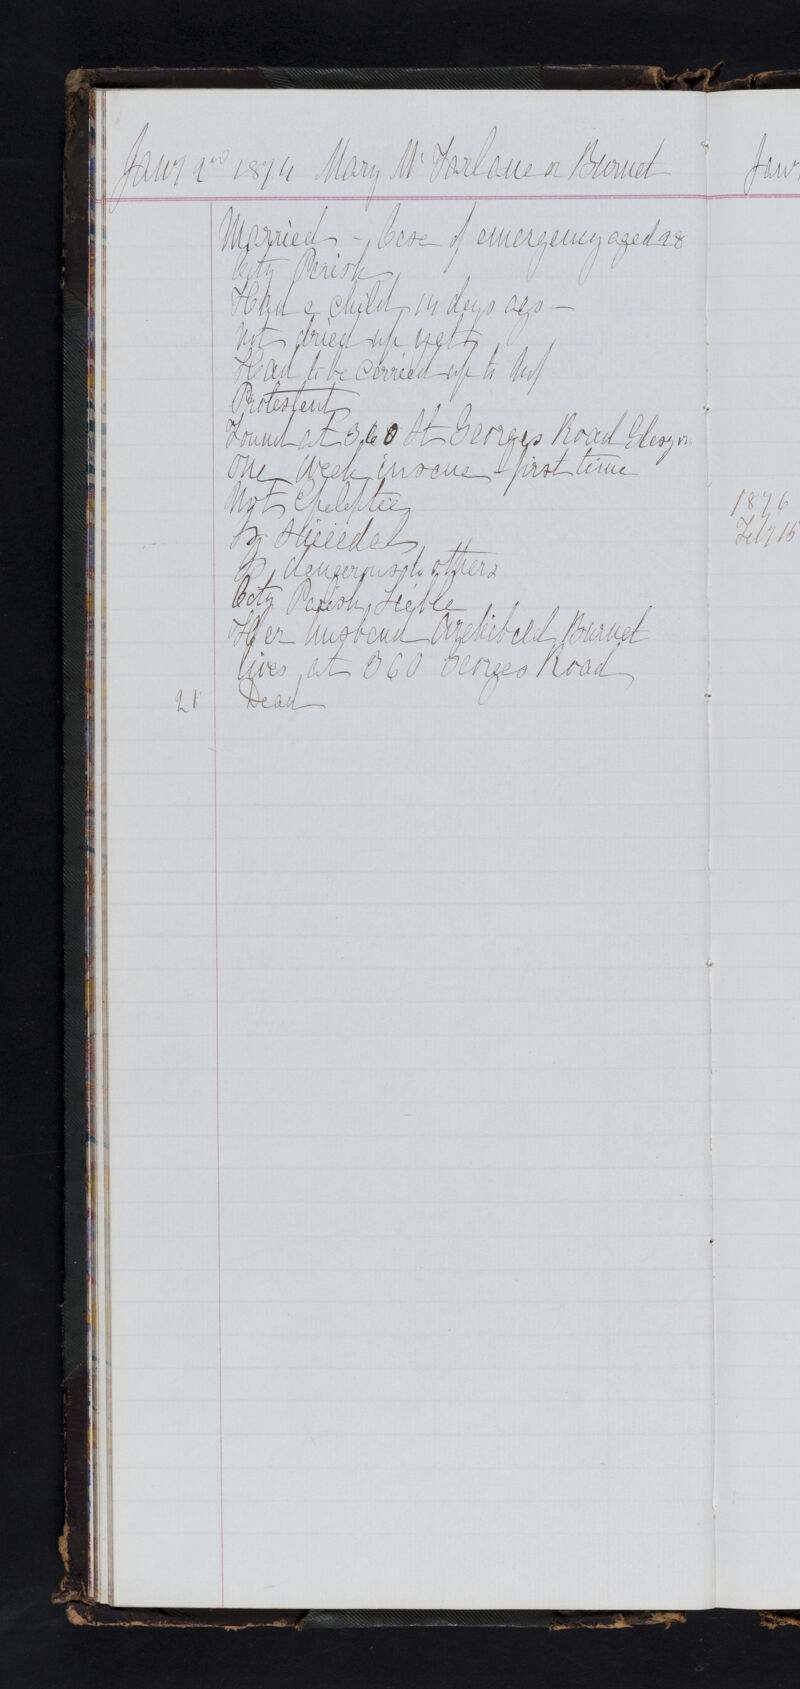 Jany 2nd 1874 Mary Mc Farlane or Burnet
Married - Case of emergency aged 28
City Parish
Had a child 14 days ago -
not dried up yet
Had to be carried up to
Protestant
Found at 360 St Georges Road Glasgow
One Week insane - first time
Not Epeleptic
Is Suicidal
Is dangerous to others
City Parish Lieble
Her husband Archibald Burnet
lives at 360 Georges Road
21 Dead
Jany
1876
Feby 15